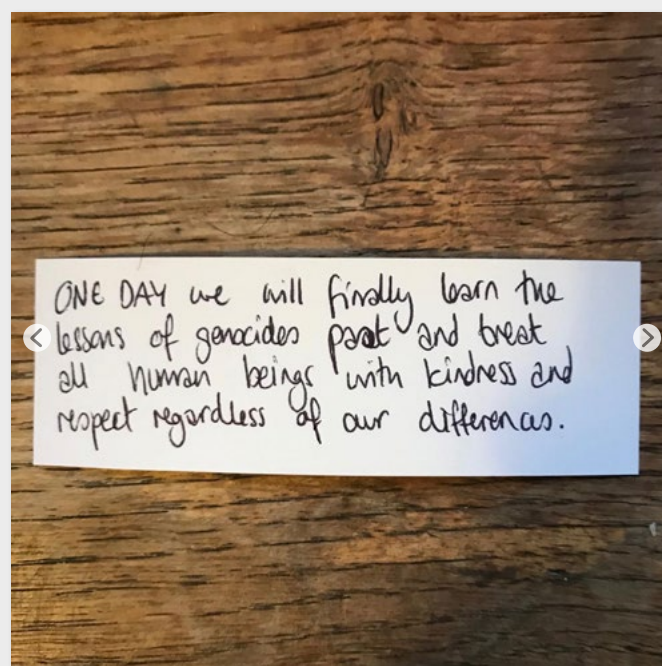 ONE DAY we will finally learn the
lessons of genocides past and treat
all human beings with kindness and
respect regardless of our differences.